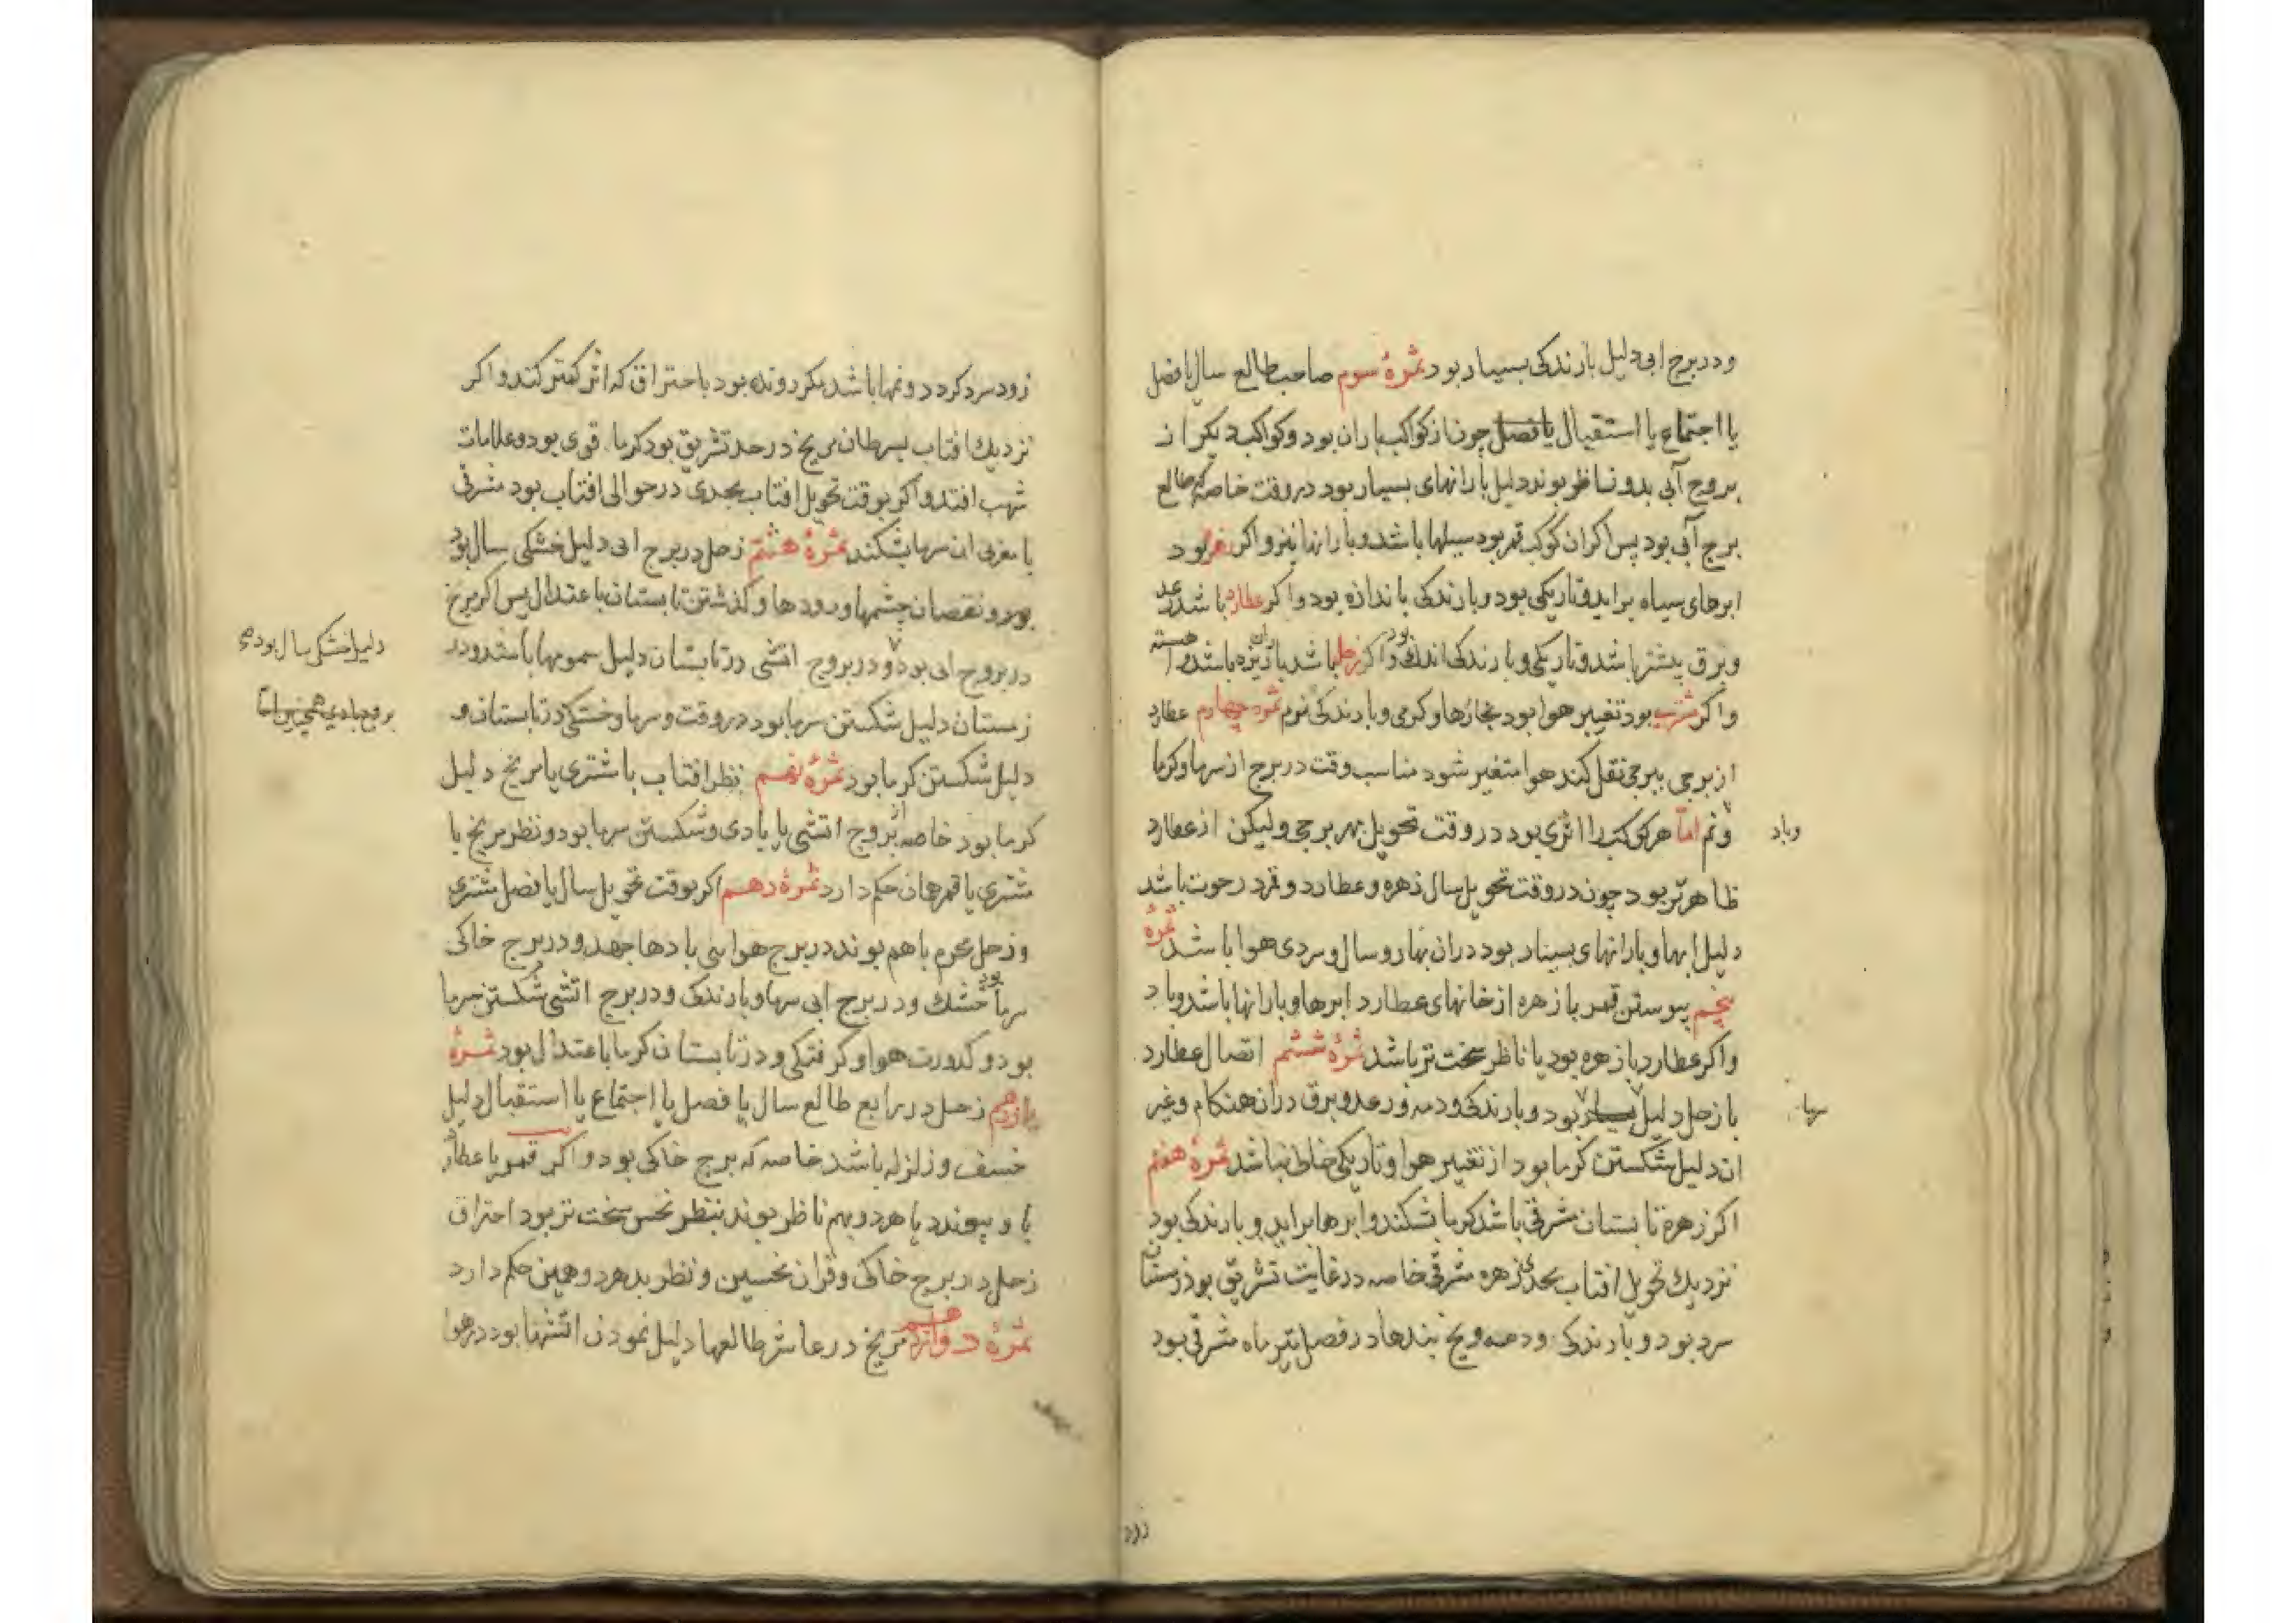 ودر برج ابی دلیل بارندکی بسیار بود ثمرهٔ سوم صاحب طالع سال یا فصل
یا اجتماع یا استقبال یا فصل چون از کواکب باران بود و کواکب دیکر از
بروج آبی بدو ناظر بوند دلیل بارانهای بسیار بود در وقت خاصه که طالع
برج آبی بود پس اکر ان کوکب قمر بود سیلها باشد و بارانها نیز و اکر زهره بود
ابرهای سیاه براید و تاریکی بود و بارندکی باندازه بود و اکر عطارد باشد رعد
و برق بیشتر باشد و تاریکی و بارندکی اندک بود و اکر زحل باشد باران تیره باشد و اهسته
و اکر مشتری بود تغییر هوا بود بخارها و کرمی و بارندکی نرم ثمره چهارم عطارد
از برجی ببرجی نقل کند هوا متغیر شود مناسب وقت در برج از سرما و کرما
و نم اما هر کوکب را اثری بود در وقت تحویل بهر برجی ولیکن از عطارد
وباد
ظاهرتر بود چون در وقت تحویل سال زهره و عطارد و قمر در حوت باشد
دلیل ابرها و بارانهای بسیار بود دران بهار و سال و سردی هوا باشد ثمرهٔ
پنجم پیوستن قمر با زهره از خانهای عطارد ابرها و بارانها باشد و باد
و اکر عطارد با زهره بود یا ناظر سخت تر باشد ثمرهٔ ششم اتصال عطارد
با زحل دلیل بسیار بود و بارندکی ودمه و رعد و برق دران هنکام وغیر
سرما
ان دلیل شکستن کرما بود از تغییر هوا و تاریکی خالی نباشد ثمرهٔ هفتم
اکر زهره تابستان شرقی باشد کرما بشکند و ابرها براید و بارندکی بود
نزدیک تحویل افتاب بجدی زهره شرقی خاصه در غایت تشریق بود زمستان
سرد بود و بارندکی ودمه و یخ بندها در فصل تیر ماه شرقی بود
زود
زود سرد کردد و نمها باشد مکر رونده بود باحتراق که اثر کمتر کند و اکر
نزدیک افتاب بسرطان مریخ در حد تشریق بود کرما قوی بود و علامات
شهب افتد و اکر بوقت تحویل افتاب بجدی در حوالی افتاب بود مشرقی
یا مغربی ان سرما بشکند ثمرهٔ هشتم زحل در برج ابی دلیل خشکی سال بود
بود و نقصان چشمها و رودها و کذشتن تابستان باعتدال پس اکر مریخ
در بروج ابی بود و در بروج اتشی در تابستان دلیل سمومها باشد و در
دلیل خشکی سال بود و
زمستان دلیل شکستن سرما بود در وقت و سرما و خشکی در تابستان و
بروج بادی همچنین است
دلیل شکستن کرما بود ثمرهٔ نهم نظر افتاب با مشتری یا مریخ دلیل
کرما بود خاصه از بروج اتشی یا بادی و شکستن سرما بود و نظر مریخ با
مشتری یا قمر همان حکم دارد ثمرهٔ دهم اکر بوقت تحویل سال یا فصل مشتری
و زحل باهم بوند در برج هوایی بادها جهد و در برج خاکی
سرما بود خشک و در برج ابی سرما و بارندکی و در برج اتشی شکستن سرما
بود و کدورت هوا و کرفتکی و در تابستان کرما باعتدال بود ثمرهٔ
یازدهم زحل در رابع طالع سال یا فصل یا اجتماع یا استقبال دلیل
خسف و زلزله باشد خاصه که برج خاکی بود و اکر قمر یا عطارد
با و پیوندد یا هر دو بهم ناظر بوند بنظر نحس سخت تر بود احتراق
زحل در برج خاکی و قران نحسین و نظر بد هر دو همین حکم دارد
ثمرهٔ دوازدهم مریخ در عاشر طالعها دلیل نمودن اتشها بود در هوا